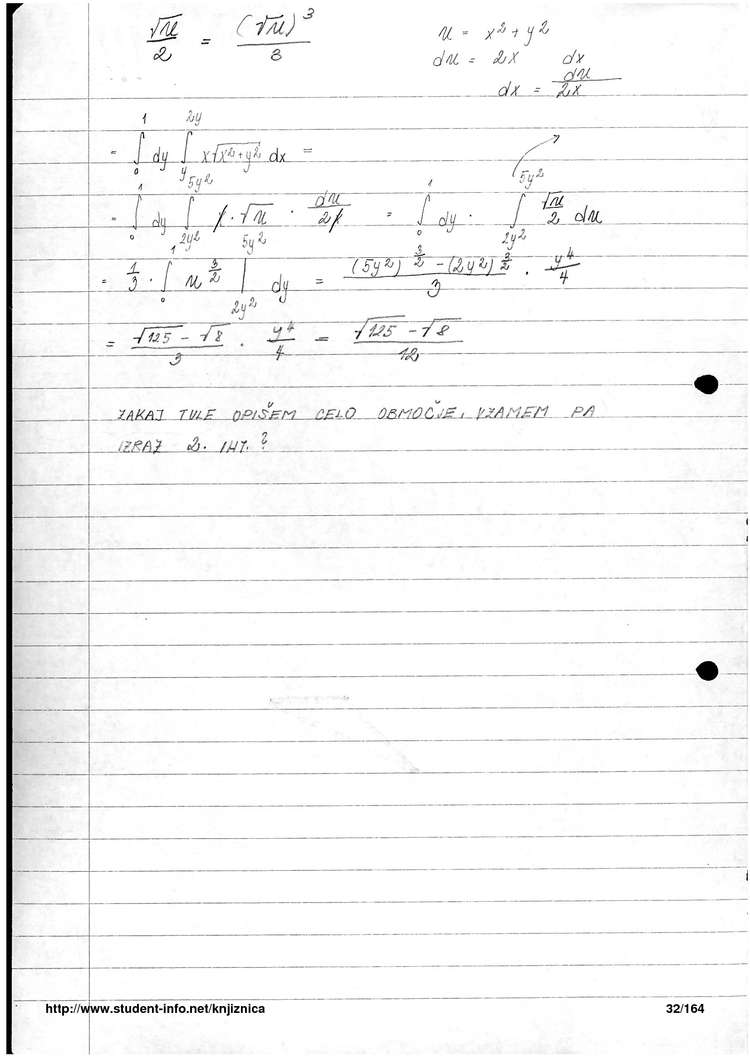 √u/2 = (√u)³/3        u = x² + y²
du = 2x dx
dx = du/2x
= ∫₀¹ dy ∫_y^{2y} x√(x²+y²) dx =
= ∫₀¹ dy ∫_{2y²}^{5y²} x · √u · du/2x = ∫₀¹ dy · ∫_{2y²}^{5y²} √u/2 du
= 1/3 · ∫₀¹ u^{3/2} |_{2y²}^{5y²} dy = ((5y²)^{3/2} - (2y²)^{3/2})/3 · y⁴/4
= (√125 - √8)/3 · y⁴/4 = (√125 - √8)/12
ZAKAJ TULE OPIŠEM CELO OBMOČJE, VZAMEM PA
IZRAZ 2. INT.?
http://www.student-info.net/knjiznica        32/164